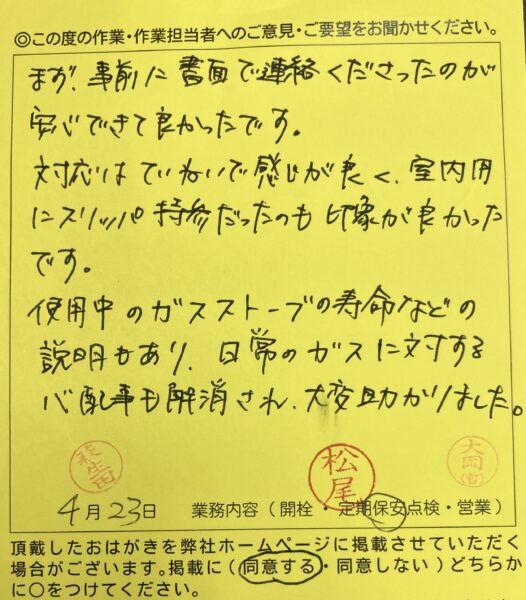 ◎この度の作業・作業担当者へのご意見・ご要望をお聞かせください。
まず、事前に書面で連絡くださったのが
安心できて良かったです。
対応はていねいで感じが良く、室内用
にスリッパ持参だったのも印象が良かった
です。
使用中のガスストーブの寿命などの
説明もあり、日常のガスに対する
心配事も解消され、大変助かりました。
松尾
大岡
4月23日 業務内容(開栓・定期保安点検・営業)
頂戴したおはがきを弊社ホームページに掲載させていただく
場合がございます。掲載に(同意する・同意しない)どちらか
に○をつけてください。